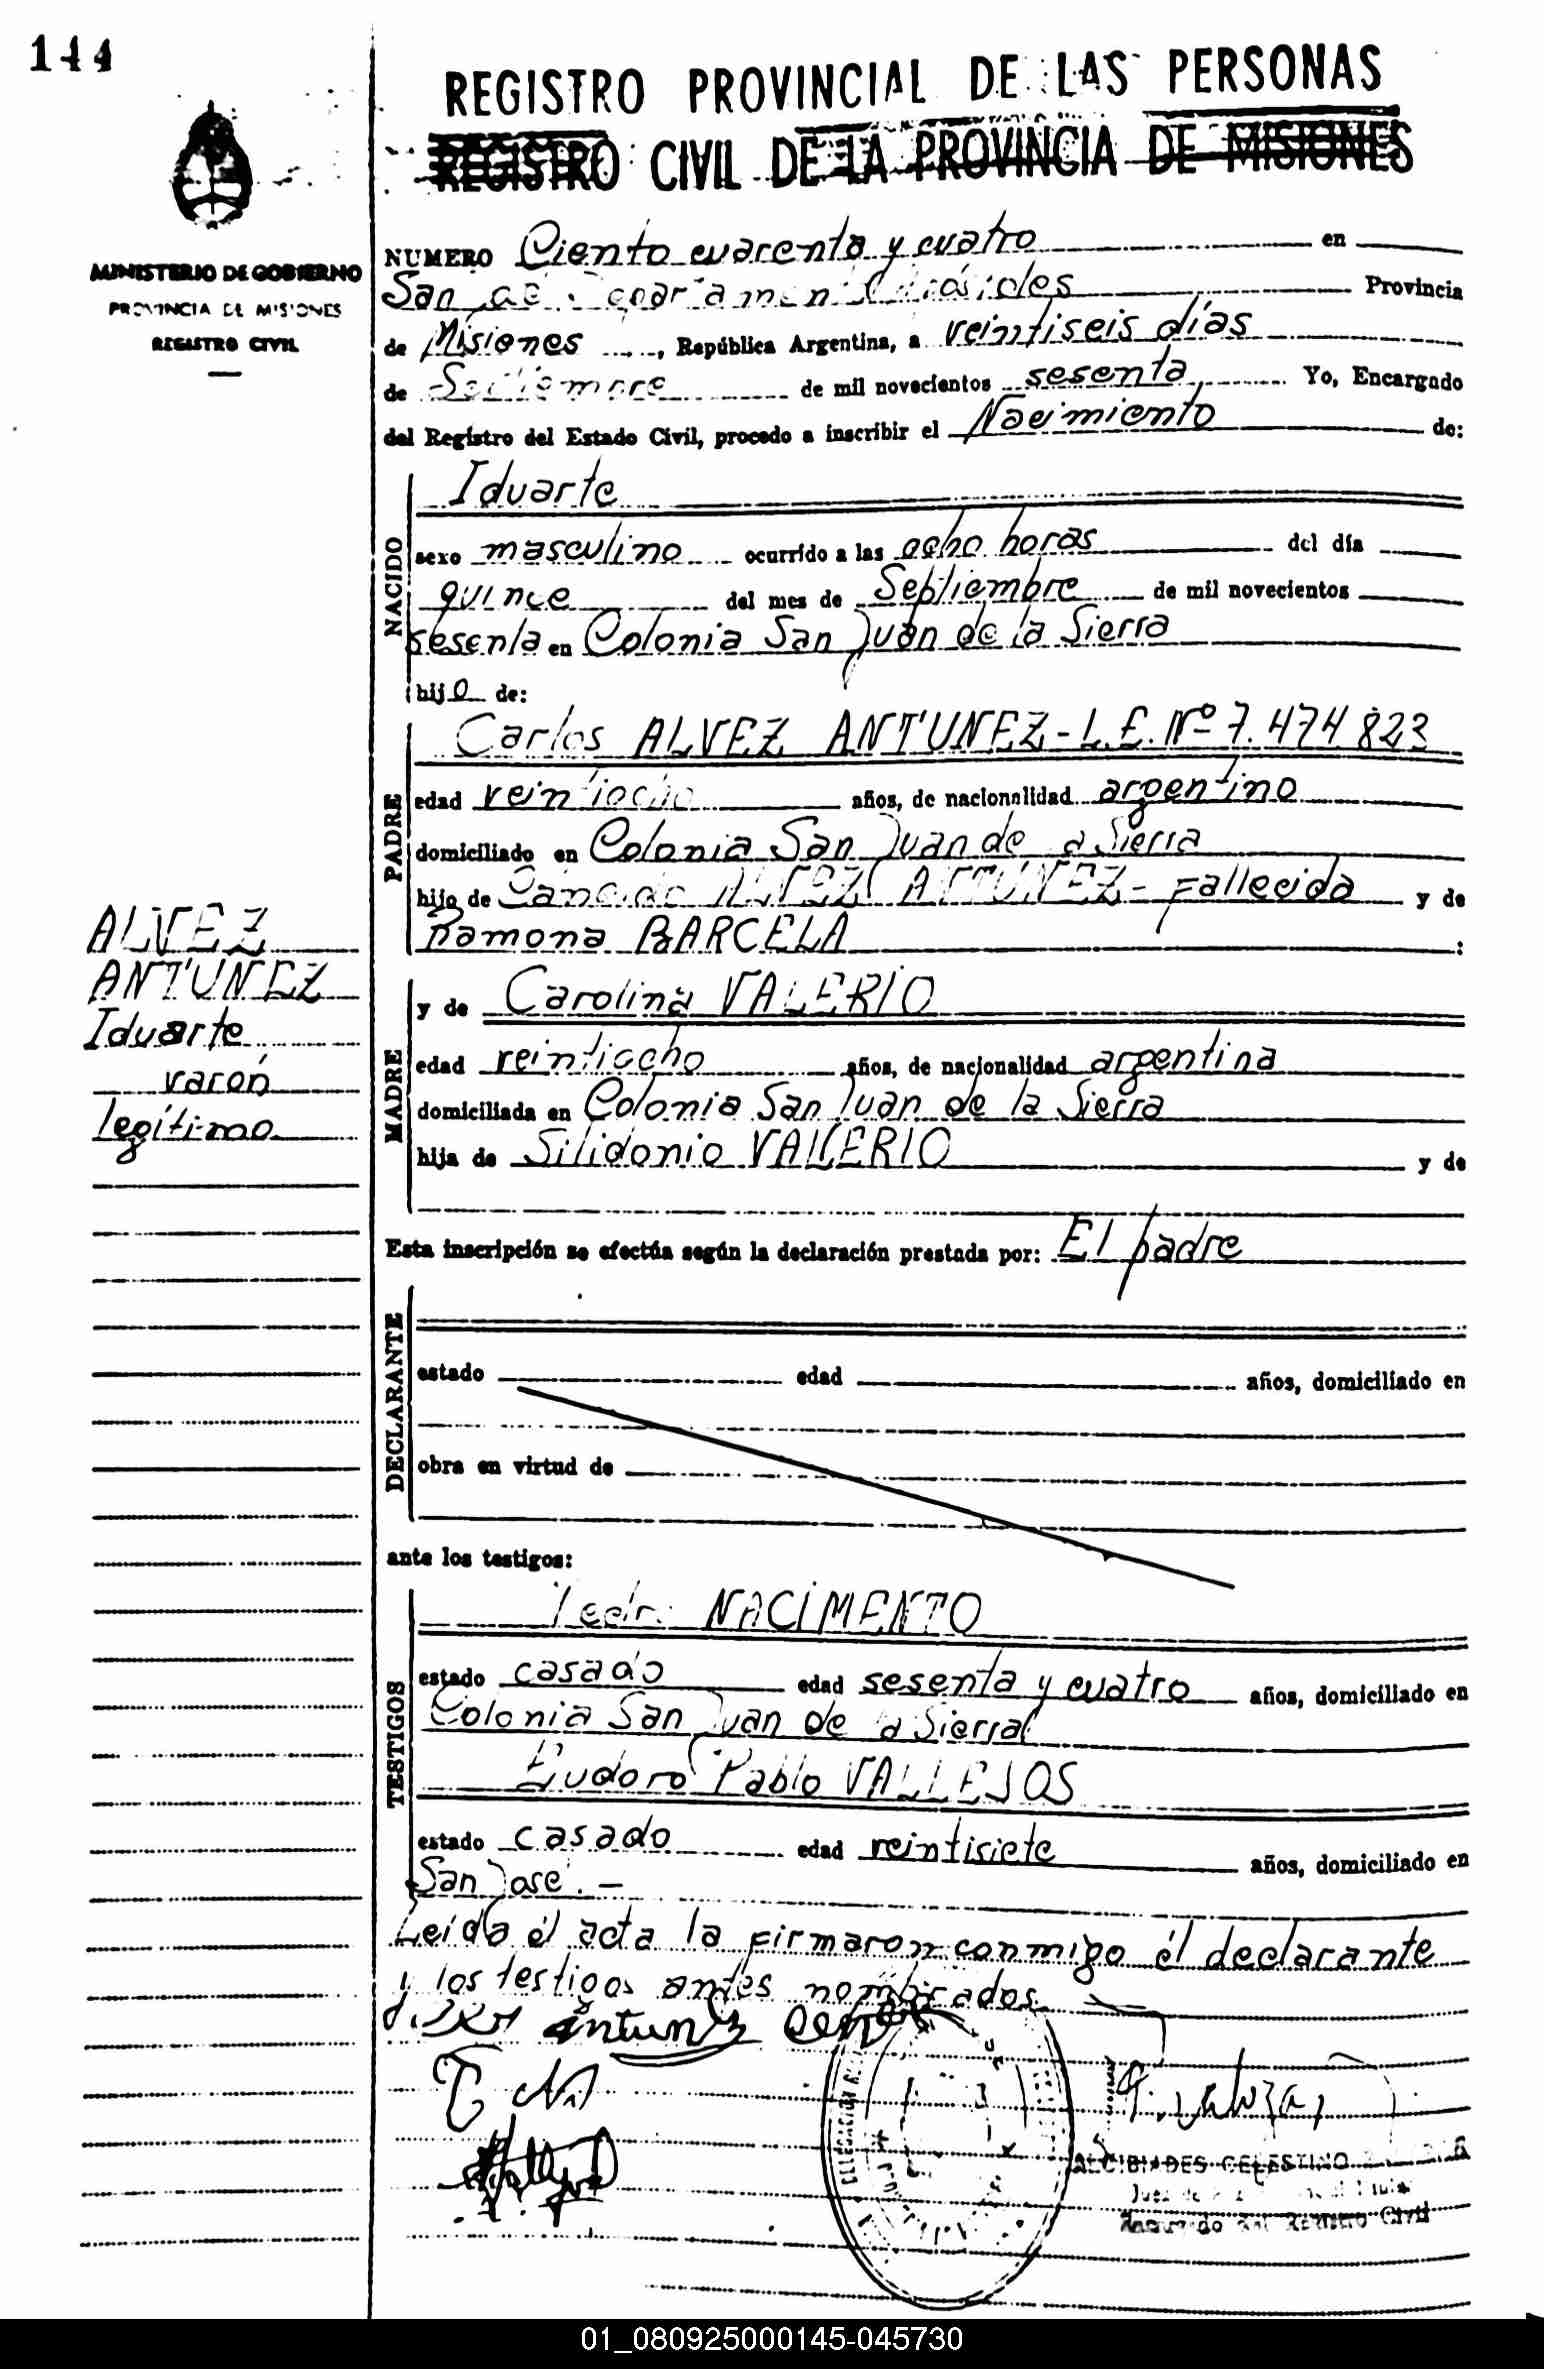 144
REGISTRO PROVINCIAL DE LAS PERSONAS
REGISTRO CIVIL DE LA PROVINCIA DE MISIONES
MINISTERIO DE GOBIERNO
PROVINCIA DE MISIONES
REGISTRO CIVIL
NUMERO Ciento cuarenta y cuatro en
San Provincia
de Misiones, República Argentina, a veintiseis días
de Septiembre de mil novecientos sesenta Yo, Encargado
del Registro del Estado Civil, procedo a inscribir el Nacimiento de:
NACIDO
Iduarte
sexo masculino ocurrido a las ocho horas del día
quince del mes de Septiembre de mil novecientos
sesenta en Colonia San Juan de la Sierra
hijo de:
PADRE
Carlos ALVEZ ANTUNEZ - L.E. Nº 7.474.823
edad veintiocho años, de nacionalidad argentino
domiciliado en Colonia San Juan de la Sierra
hijo de ALVEZ ANTUNEZ - fallecido y de
Ramona BARCELA :
ALVEZ
ANTUNEZ
Iduarte
varón
legítimo
MADRE
y de Carolina VALERIO
edad veintiocho años, de nacionalidad argentina
domiciliada en Colonia San Juan de la Sierra
hija de Silidonio VALLERIO y de
Esta inscripción se efectúa según la declaración prestada por: El padre
DECLARANTE
estado edad años, domiciliado en
obra en virtud de
ante los testigos:
TESTIGOS
Pedro NACIMENTO
estado casado edad sesenta y cuatro años, domiciliado en
Colonia San Juan de la Sierra
Eudoro Pablo VALLEJOS
estado casado edad veintisiete años, domiciliado en
San José.-
Leída él acta la firmaron conmigo él declarante
y los testigos antes nombrados.
antunez
ALCIBIADES CELESTINO
Encargado del Registro Civil
01_080925000145-045730